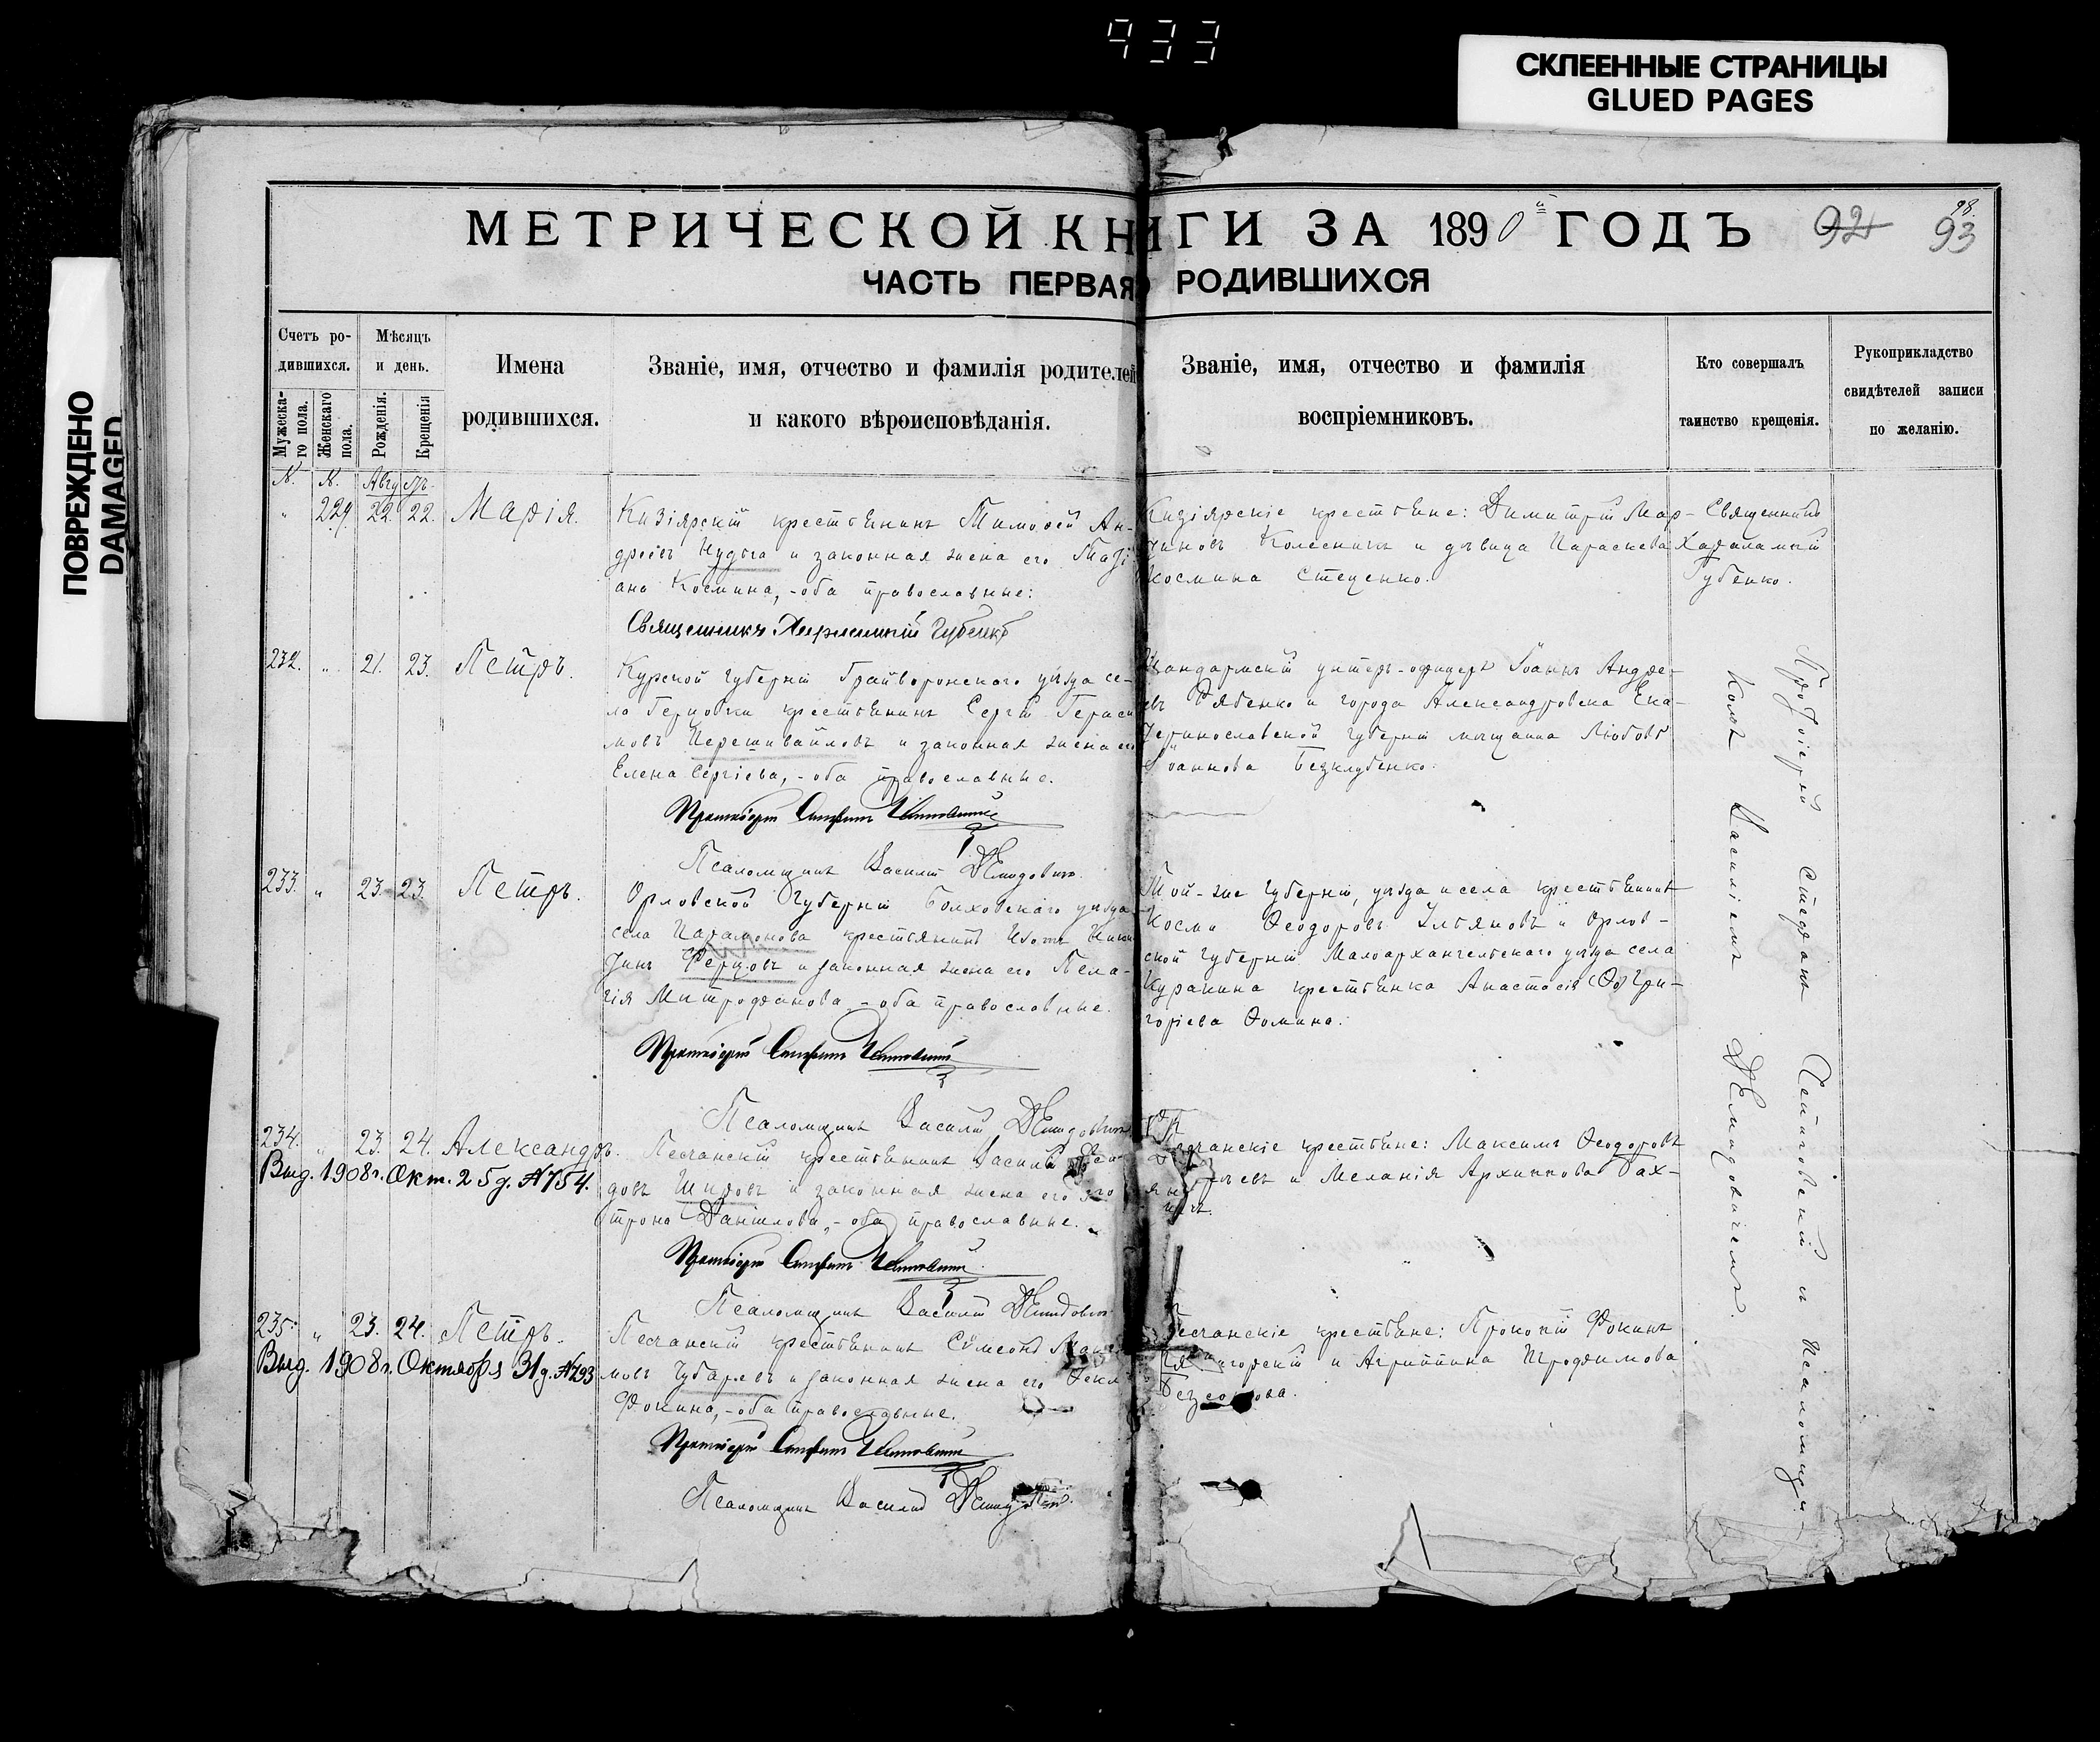 933
СКЛЕЕННЫЕ СТРАНИЦЫ
GLUED PAGES
ПОВРЕЖДЕНО
DAMAGED
МЕТРИЧЕСКОЙ КНИГИ ЗА 1890й ГОДЪ 92 93
98.
ЧАСТЬ ПЕРВАЯ О РОДИВШИХСЯ
Счетъ ро-
дившихся.
Мужеска-
го пола.
Женскаго
пола.
Мѣсяцъ
и день.
Рожденія.
Крещенія
Имена
родившихся.
Званіе, имя, отчество и фамилія родителей
и какого вѣроисповѣданія.
Званіе, имя, отчество и фамилія
воспріемниковъ.
Кто совершалъ
таинство крещенія.
Рукоприкладство
свидѣтелей записи
по желанію.
N. N. Августъ.
" 229. 22. 22. Марія.
Кизіярскій крестьянинъ Тимоѳей Ан-
дреевъ Нудьга и законная жена его Таті
ана Космина, - оба православные:
Священникъ Харлампій Губенко
Кизіярскіе крестьяне: Димитрій Мар-
тиновъ Колесникъ и дѣвица Параскева
Космина Стеценко.
Священникъ
Харалампій
Губенко.
232. " 21. 23. Петръ.
Курской губерніи Грайворонскаго уѣзда се-
ла крестьянинъ Сергій Гераси
мовъ и законная жена его
Елена Сергіева, - оба православные.
Протоіерей Стефанъ
Псаломщикъ Василій Демидовичъ.
Жандармскій унтеръ-офицеръ Іоаннъ Андре-
евъ Рябенко и города Александровска Ека-
теринославской губерніи мѣщанка Любовь
Іоаннова Безклубенко.
233. " 23. 23. Петръ.
Орловской губерніи Болховскаго уѣзда
села Парамонова крестьянинъ
Ферцовъ и законная жена его Пела-
гія Митрофанова, - оба православные.
Протоіерей Стефанъ
Псаломщикъ Василій Демидовичъ
Той-же губерніи, уѣзда и села крестьянинъ
Косма Ѳеодоровъ Ульяновъ и Орлов-
ской губерніи Малоархангельскаго уѣзда села
Куракина крестьянка Анастасія Гри-
горіева Ѳомина.
234. " 23. 24. Александръ.
Выд. 1908г. Окт. 25 д. №754.
Песчанскій крестьянинъ Василій
довъ Шировъ и законная жена его
Даніилова, - оба православные.
Протоіерей Стефанъ
Псаломщикъ Василій Демидовичъ
Песчанскіе крестьяне: Максимъ Ѳеодоровъ
и Меланія Архиппова Бах-
235. " 23. 24. Петръ.
Выд. 1908г. Октября 31 д. №793
Песчанскій крестьянинъ Сѵмеонъ
мовъ Чубаревъ и законная жена его Ѳекла
Фокина, - оба православные.
Протоіерей Стефанъ
Псаломщикъ Василій
Песчанскіе крестьяне: Прокопій Фокинъ
и Агриппина Трофимова
Протоіерей Стефанъ съ псаломщи-
комъ Василіемъ Демидовичемъ.